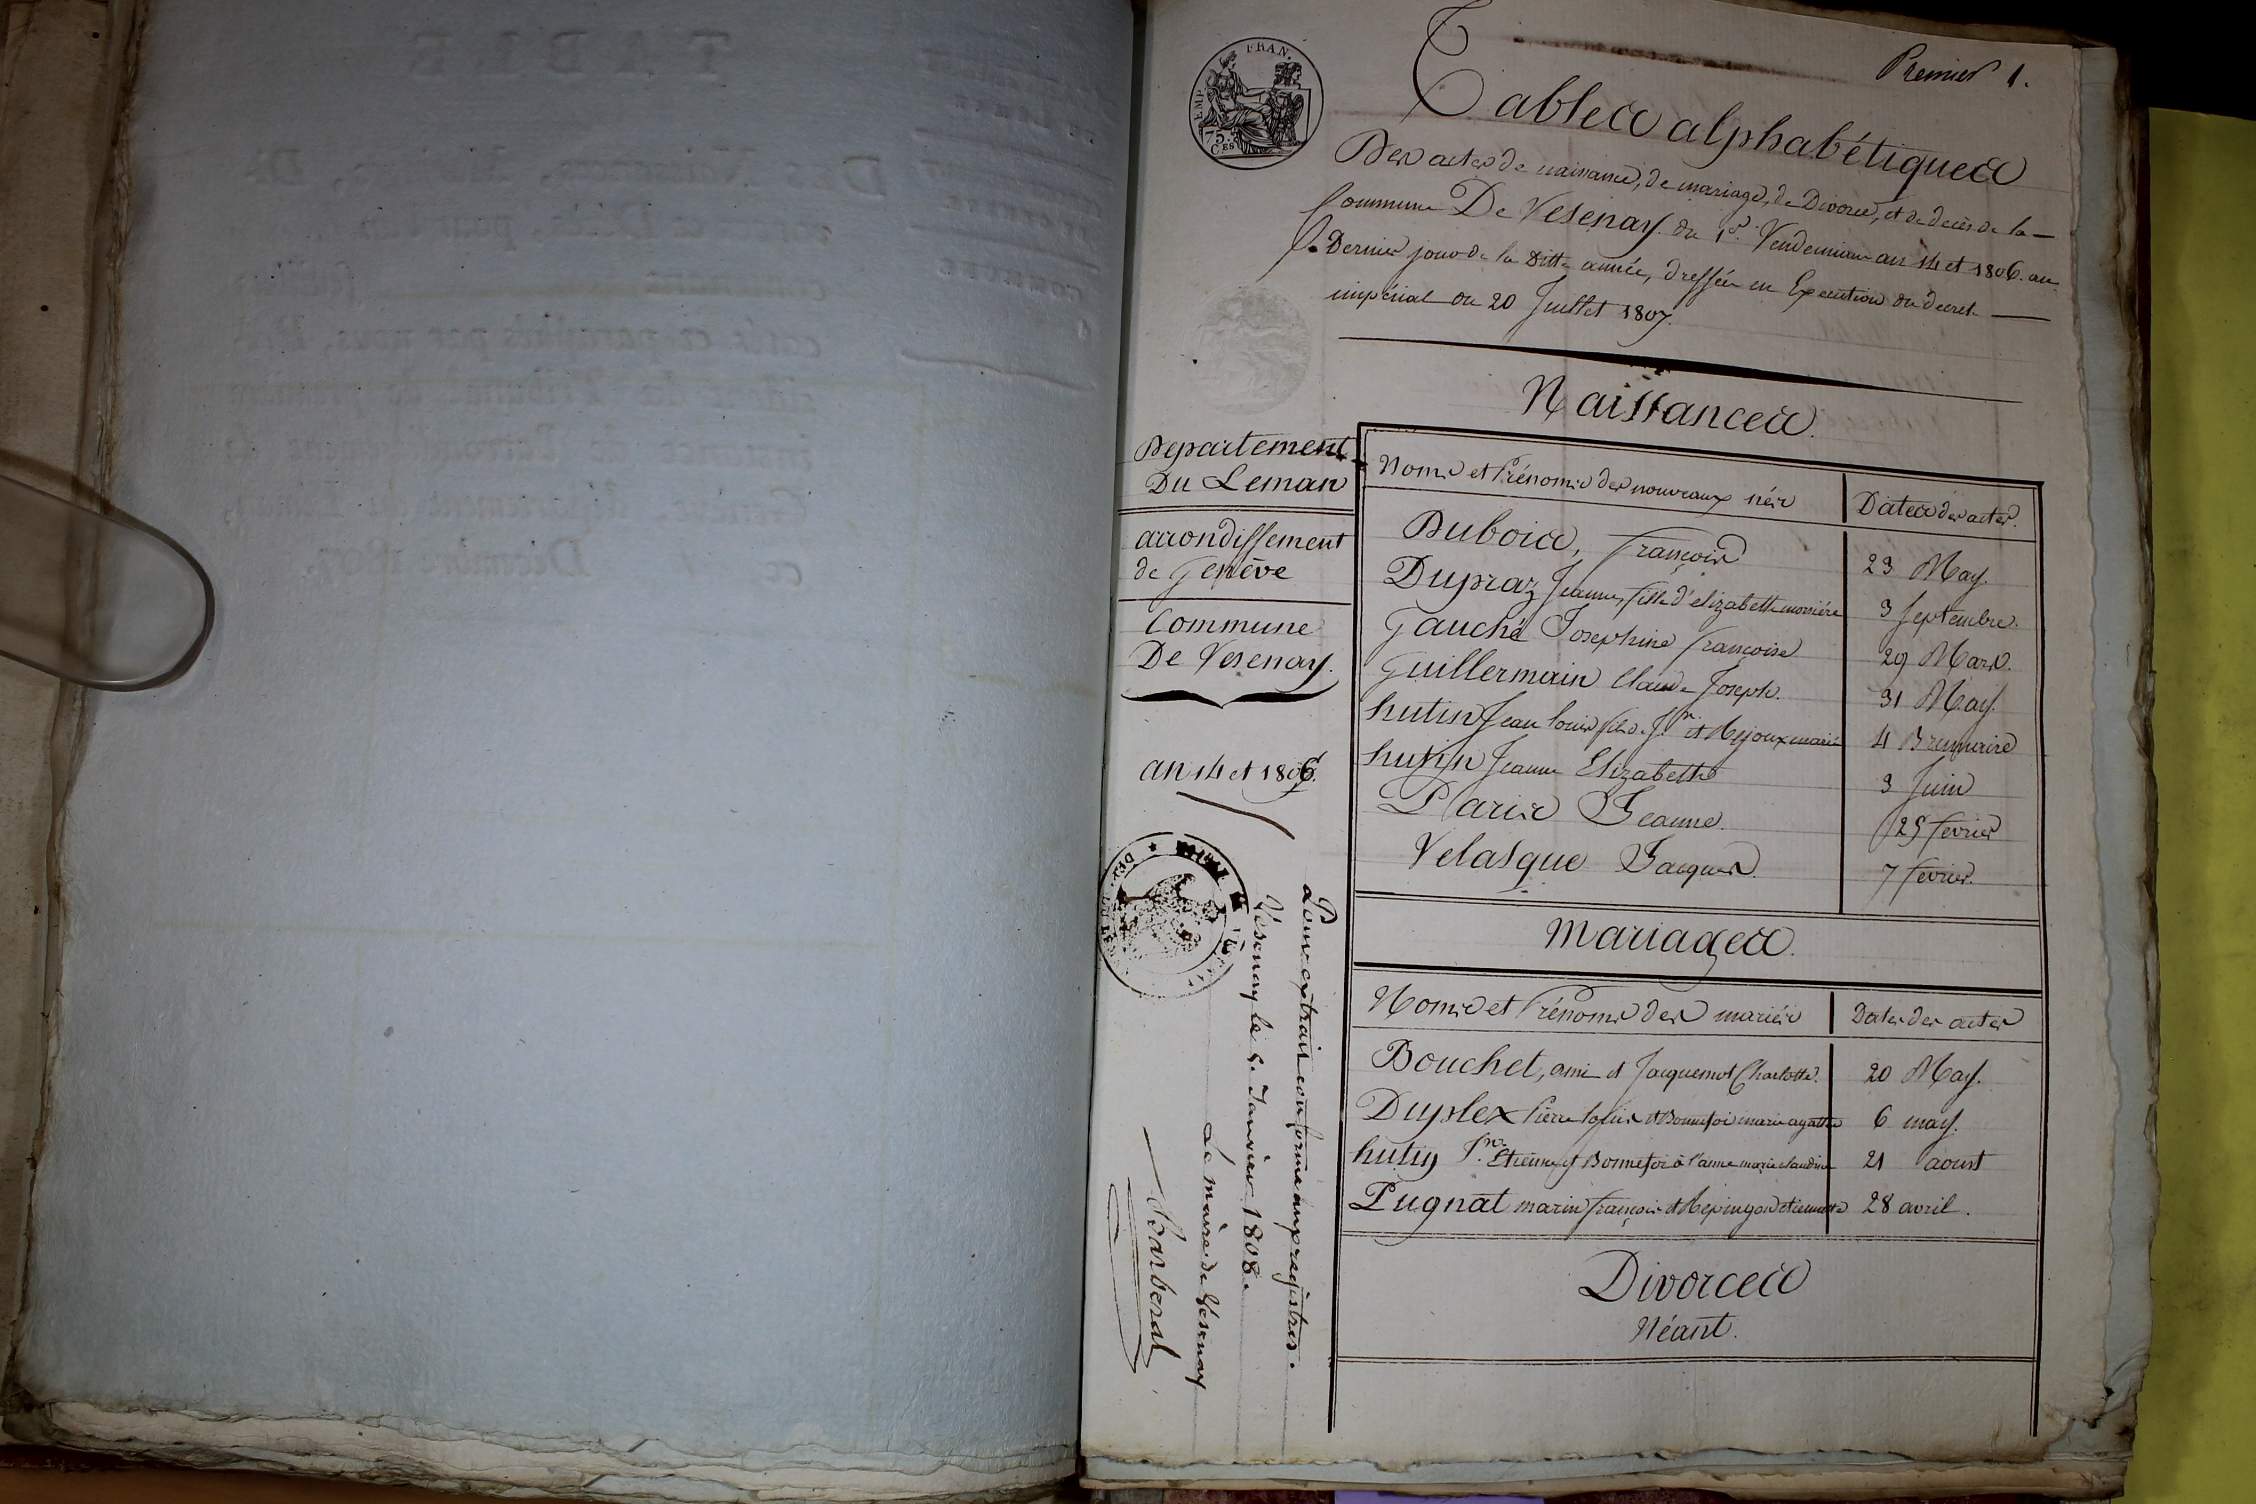 Premier 1.
FRAN.
EMP.
75.
C.ES
Tables alphabétiques
Des actes de naissance, de mariage, de Divorce, et de décès de la
Commune De Vesenay. du 1er. Vendemiaire an 14 et 1806. au
Dernier jour de la Ditte année, dressées en Execution du decret
impérial du 20 Juillet 1807.
Naissances.
Departement
Du Leman
arrondissement
de Genève
Commune
De Vesenay.
an 14 et 1806.
Noms et Prénoms des nouveaux nés Dates des actes.
Dubois, François 23 May.
Dupraz Jeanne, fille d'elizabeth 3 Septembre.
Gauché Josephine françoise 29 Mars.
Guillermin Claude Joseph. 31 May.
hutin Jean louis fils J.n et Mejoux marie 4 Brumaire
hutin Jeanne Elizabeth 3 Juin
Paris Jeanne. 25 fevrier
Velasque Jacques. 7 fevrier.
Mariages.
Noms et Prénoms des mariés Dates des actes
Bouchet, ami et Jacquemot Charlotte. 20 May.
Duplex Pierre louis et Bonnefoi marie agathe 6 may.
hutin J.n Etienne et Bonnefoi marie claudine 21 aoust
Pugnat marin françois et etiennette 28 avril.
Divorces
Néant.
Pour extrait conforme aux registres.
Vésenay le 5. Janvier 1808.
Le maire de Vésenay
Barberat
TABLE
Des Naissances,
cotés et paraphés par nous,
Tribunal de première
instance de l'arrondissement de
Genève, département du Léman,
ce Décembre 1807.
COMMUNE